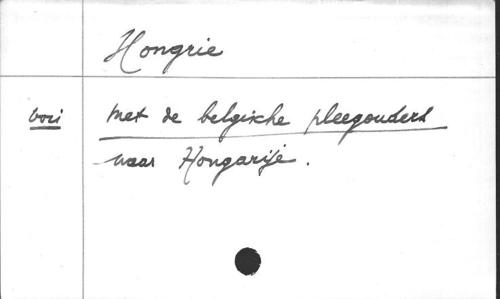 Hongrie
voir met de belgische pleegouders
naar Hongarije.